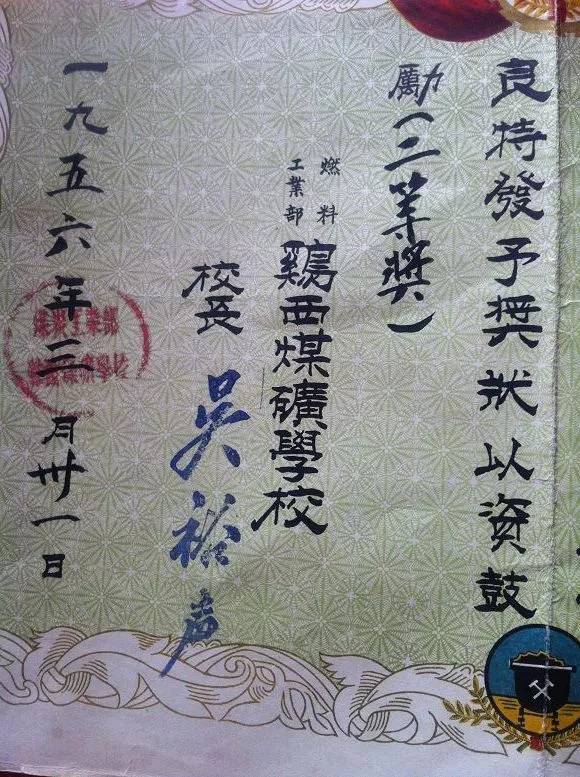 良特發予奬狀以資鼓
勵(二等奬)
燃料
工業部
鷄西煤礦學校
校長 吴裕声
一九五六年三月卅一日